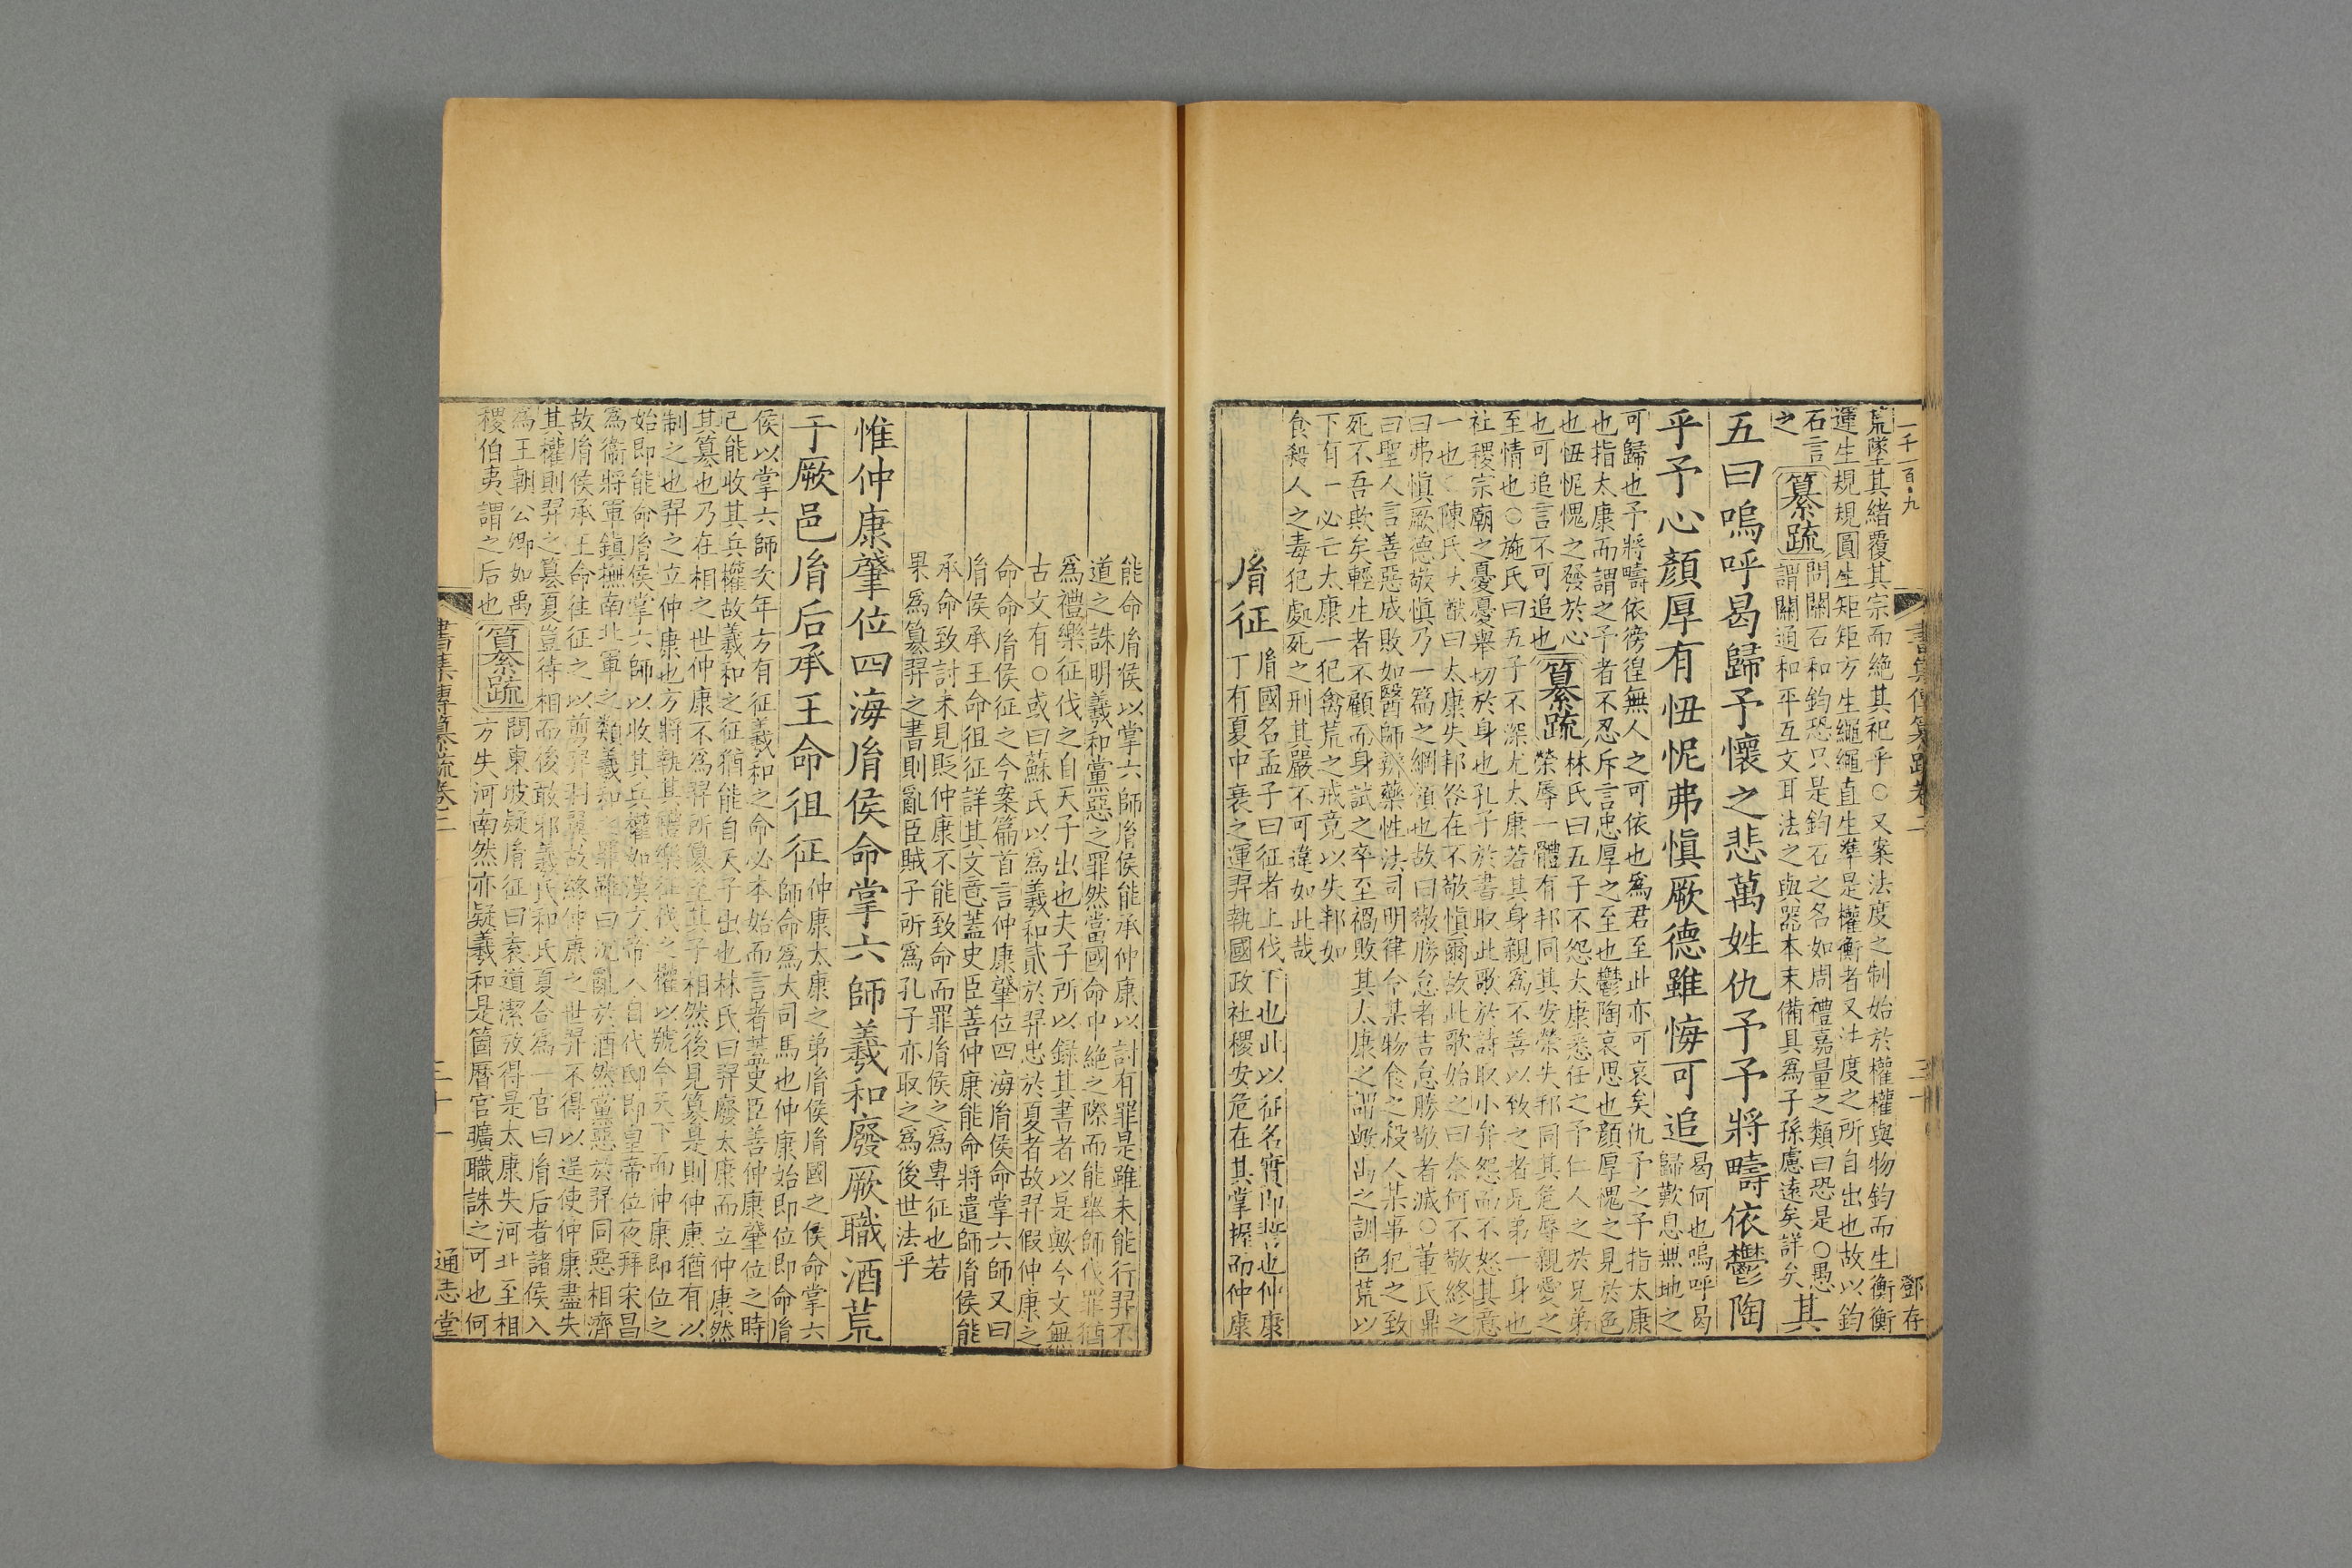 一千一百九
書集傳纂疏卷二
三十
鄧存
荒墜其緒覆其宗而絶其祀乎○又案法度之制始於權權與物鈞而生衡衡
運生規規圓生矩矩方生繩繩直生準是權衡者又法度之所自出也故以鈞
石言之
纂疏
問關石和鈞恐只是鈞石之名如周禮嘉量之類曰恐是○愚
謂關通和平互文耳法之與器本末備具爲子孫慮遠矣詳矣
其
五曰嗚呼曷歸予懷之悲萬姓仇予予將疇依鬱陶
乎予心顏厚有忸怩弗愼厥德雖悔可追
曷何也嗚呼曷
歸歎息無地之
可歸也予將疇依徬徨無人之可依也爲君至此亦可哀矣仇予之予指太康
也指太康而謂之予者不忍斥言忠厚之至也鬱陶哀思也顏厚愧之見於色
也忸怩愧之發於心
也可追言不可追也
纂疏
林氏曰五子不怨太康悉任之予仁人之於兄弟
榮辱一體有邦同其安榮失邦同其危辱親愛之
至情也○施氏曰五子不深尤太康若其身親爲不善以致之者兄弟一身也
社稷宗廟之憂憂舉切於身也孔子於書取此歌於詩取小弁怨而不怒其意
一也○陳氏大猷曰太康失邦咎在不敬愼爾故此歌始之曰奈何不敬終之
曰弗愼厥德敬愼乃一篇之綱領也故曰敬勝怠者吉怠勝敬者滅○董氏鼎
曰聖人言善惡成敗如醫師辨藥性法司明律令某物食之殺人某事犯之致
死不吾欺矣輕生者不顧而身試之卒至禍敗其太康之謂歟禹之訓色荒以
下有一必亡太康一犯禽荒之戒竟以失邦如
食殺人之毒犯處死之刑其嚴不可違如此哉
胤征
胤國名孟子曰征者上伐下也此以征名實即誓也仲康
丁有夏中衰之運羿執國政社稷安危在其掌握而仲康
能命胤侯以掌六師胤侯能承仲康以討有罪是雖未能行羿不
道之誅明羲和黨惡之罪然當國命中絶之際而能舉師伐罪猶
爲禮樂征伐之自天子出也夫子所以錄其書者以是歟今文無
古文有○或曰蘇氏以爲羲和貳於羿忠於夏者故羿假仲康之
命命胤侯征之今案篇首言仲康肇位四海胤侯命掌六師又曰
胤侯承王命徂征詳其文意蓋史臣善仲康能命將遣師胤侯能
承命致討未見貶仲康不能致命而罪胤侯之爲專征也若
果爲簒羿之書則亂臣賊子所爲孔子亦取之爲後世法乎
惟仲康肇位四海胤侯命掌六師羲和廢厥職酒荒
于厥邑胤后承王命徂征
仲康太康之弟胤侯胤國之侯命掌六
師命爲大司馬也仲康始即位即命胤
侯以掌六師次年方有征羲和之命必本始而言者蓋史臣善仲康肇位之時
已能收其兵權故羲和之征猶能自天子出也林氏曰羿廢太康而立仲康然
其簒也乃在相之世仲康不爲羿所簒至其子相然後見簒是則仲康猶有以
制之也羿之立仲康也方將執其禮樂征伐之權以號令天下而仲康即位之
始即能命胤侯掌六師以收其兵權如漢文帝入自代邸即皇帝位夜拜宋昌
爲衞將軍鎭撫南北軍之類羲和之罪雖曰沉亂於酒然黨惡於羿同惡相濟
故胤侯承王命往征之以剪羿羽翼故終仲康之世羿不得以逞使仲康盡失
其權則羿之簒夏豈待相而後敢邪羲氏和氏夏合爲一官曰胤后者諸侯入
爲王朝公卿如禹
稷伯夷謂之后也
纂疏
問東坡疑胤征曰袁道潔攷得是太康失河北至相
方失河南然亦疑羲和是箇曆官曠職誅之可也何
書集傳纂疏卷二
三十一
通志堂